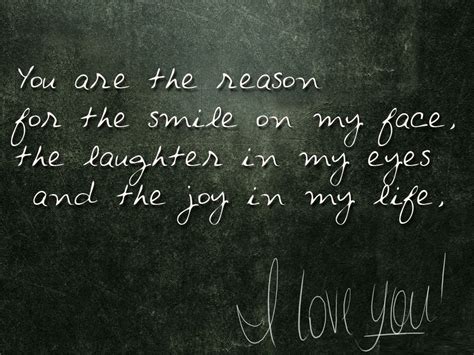 You are the reason
for the smile on my face,
the laughter in my eyes
and the joy in my life,
I love you!